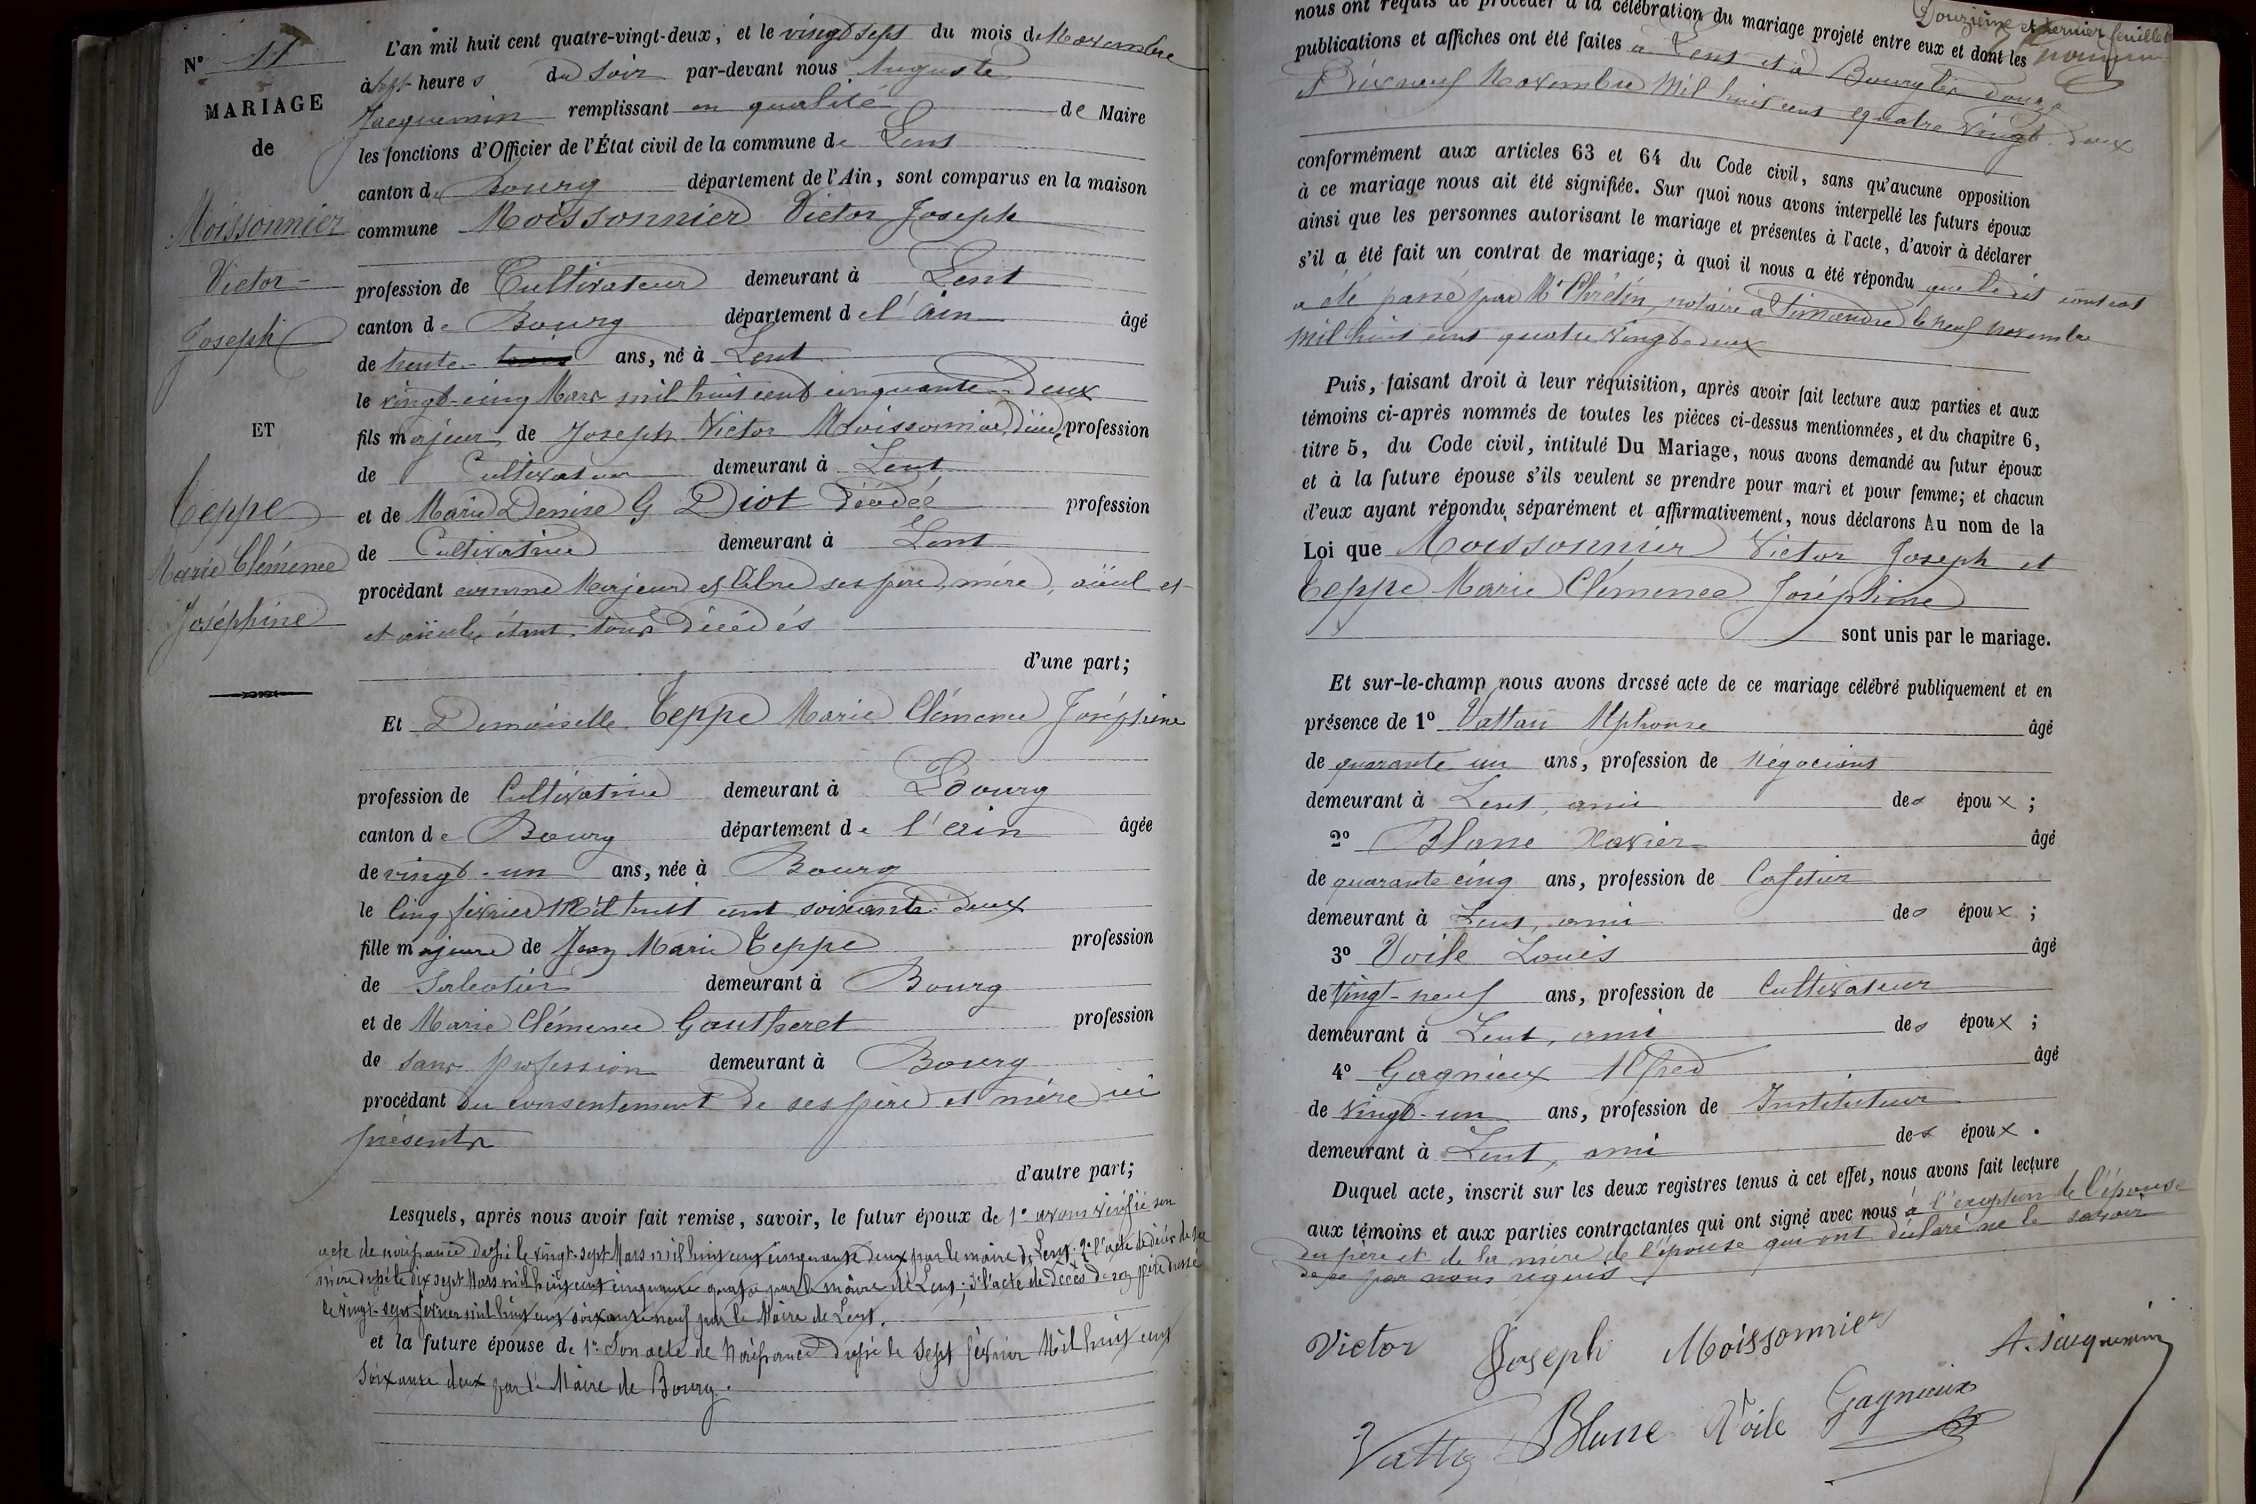 N° 11
MARIAGE
de
Moissonnier
Victor
Joseph
ET
Teppe
Marie Clémence
Joséphine
L'an mil huit cent quatre-vingt-deux, et le vingt sept du mois de Novembre
à sept heures du soir par-devant nous Auguste
Jacquemin remplissant en qualité de Maire
les fonctions d'Officier de l'État civil de la commune de Lent
canton de Bourg département de l'Ain, sont comparus en la maison
commune Moissonnier Victor Joseph
profession de Cultivateur demeurant à Lent
canton de Bourg département de l'ain âgé
de trente ans, né à Lent
le vingt-cinq Mars mil huit cent cinquante-deux
fils majeur de Joseph Victor Moissonnier profession
de Cultivateur demeurant à Lent
et de Marie Denise G Diot Décédée profession
de Cultivatrice demeurant à Lent
procédant comme Majeur et libre ses père, mère, aïeul et
et aïeule étant tous décédés
d'une part;
Et Demoiselle Teppe Marie Clémence Joséphine
profession de Cultivatrice demeurant à Bourg
canton de Bourg département de l'ain âgée
de vingt-un ans, née à Bourg
le Cinq février Mil huit cent soixante-deux
fille majeure de Jean Marie Teppe profession
de Sabotier demeurant à Bourg
et de Marie Clémence Gautheret profession
de sans profession demeurant à Bourg
procédant du consentement de ses père et mère ici
présents
d'autre part;
Lesquels, après nous avoir fait remise, savoir, le futur époux de 1° avons vérifié son
acte de naissance dressé le vingt-sept Mars mil huit cent cinquante deux par le maire de Lent. 2° l'acte de décès de sa
mère dressé le dix sept Mars mil huit cent cinquante quatre par le maire de Lent; 3° l'acte de décès de son père dressé
le vingt-sept février mil huit cent soixante neuf par le Maire de Lent.
et la future épouse de 1° Son acte de Naissance dressé le Sept février Mil huit cent
soixante deux par le Maire de Bourg.
Douzième et dernier feuillet
nous ont requis de procéder à la célébration du mariage projeté entre eux et dont les
publications et affiches ont été faites à Lent et à Bourg les douze
et Dix neuf Novembre Mil huit cent quatre vingt-deux
conformément aux articles 63 et 64 du Code civil, sans qu'aucune opposition
à ce mariage nous ait été signifiée. Sur quoi nous avons interpellé les futurs époux
ainsi que les personnes autorisant le mariage et présentes à l'acte, d'avoir à déclarer
s'il a été fait un contrat de mariage; à quoi il nous a été répondu que le dit contrat
a été passé par Me Chrétin, notaire à Simandre le neuf novembre
mil huit cent quatre vingt deux
Puis, faisant droit à leur réquisition, après avoir fait lecture aux parties et aux
témoins ci-après nommés de toutes les pièces ci-dessus mentionnées, et du chapitre 6,
titre 5, du Code civil, intitulé Du Mariage, nous avons demandé au futur époux
et à la future épouse s'ils veulent se prendre pour mari et pour femme; et chacun
d'eux ayant répondu séparément et affirmativement, nous déclarons Au nom de la
Loi que Moissonnier Victor Joseph et
Teppe Marie Clémence Joséphine
sont unis par le mariage.
Et sur-le-champ nous avons dressé acte de ce mariage célébré publiquement et en
présence de 1° Alphonse âgé
de quarante un ans, profession de Négociant
demeurant à Lent, ami des époux;
2° Blanc Xavier âgé
de quarante cinq ans, profession de Cafetier
demeurant à Lent, ami des époux;
3° Voile Louis âgé
de Vingt-neuf ans, profession de Cultivateur
demeurant à Lent, ami des époux;
4° Gagnieux Alfred âgé
de vingt-un ans, profession de Instituteur
demeurant à Lent, ami des époux.
Duquel acte, inscrit sur les deux registres tenus à cet effet, nous avons fait lecture
aux témoins et aux parties contractantes qui ont signé avec nous à l'exception de l'épouse
du père et de la mère de l'épouse qui ont déclaré ne le savoir
de ce par nous requis
Victor Joseph Moissonnier A. Jacquemin
Blanc Voile Gagnieux